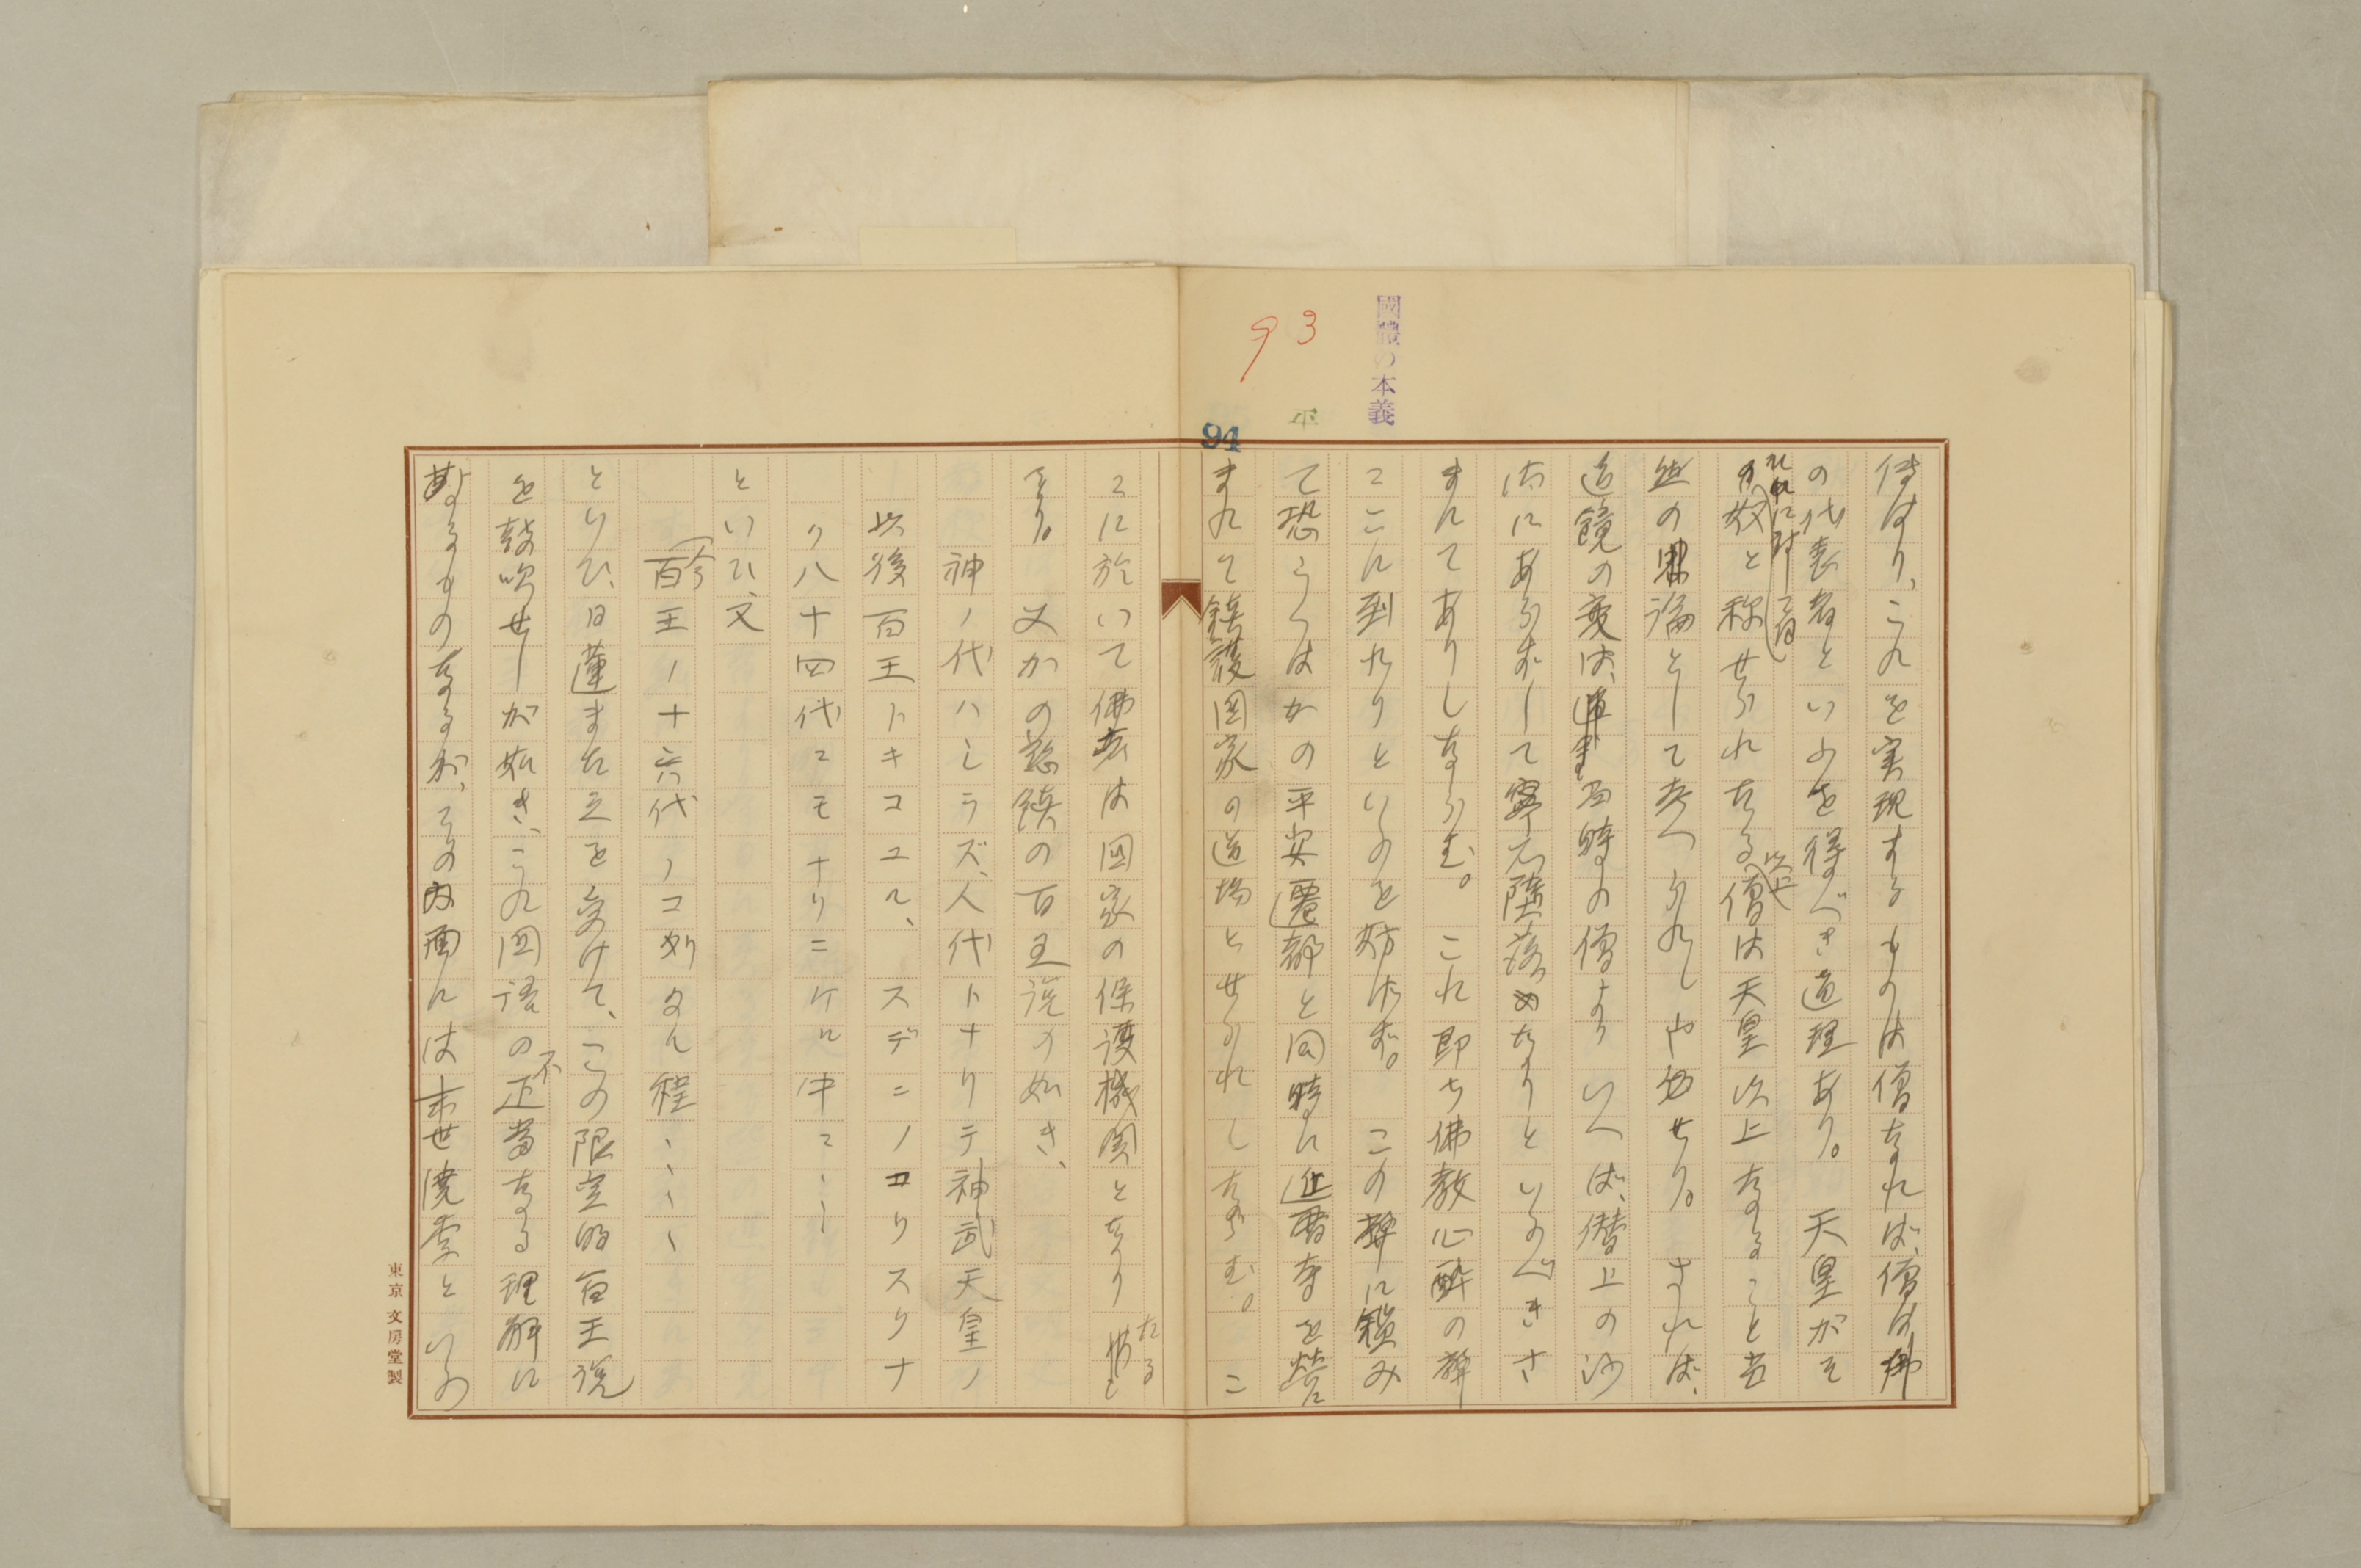 國體の本義
93
平
94
傳はり、これを実現するものは僧なれば、僧は佛
の代表者といふを得べき道理あり。天皇がそ
れに対して
の奴と称せられたる以上、僧は天皇以上なること当
然の論として考へられしや必せり。されば、
道鏡の変は、当時の僧より いへば、僭上の沙
汰にあらずして寧ろ堕落めたりといふべきさ
まにてありしならむ。これ即ち佛教心酔の弊
ここに到れりといふを妨げず。この弊に鑑み
て恐らくはかの平安遷都と同時に延暦寺を営
まれて鎮護国家の道場とせられしならむ。こ
こに於いて佛者は国家の保護機関となり たる
なり。又かの慈鎮の百王説の如き、
神ノ代ハシラズ、人代トナリテ神武天皇ノ
以後百王トキコユル、スデニノコリスクナ
ク八十四代ニモナリニケル中ニ、、
といひ、又
(今)百王ノ十六代ノコリタル程、、、、
といひ、日蓮また之を受けて、この限定的百王説
を鼓吹せしが如き、これ国語の不正当なる理解に
基するものなるが、その内面には末世澆季といふ
東京 文房堂製